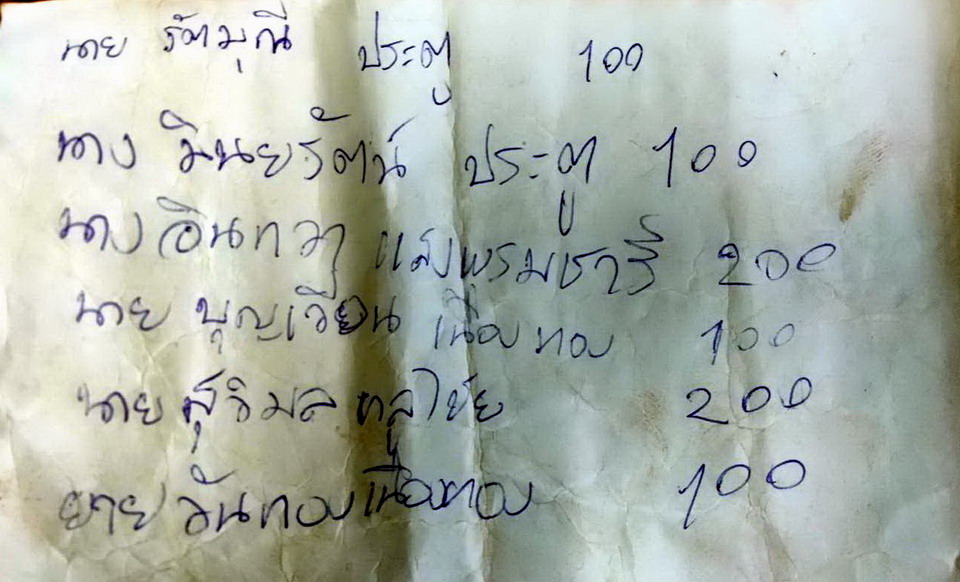 นาย รัตมุณี ประตู 100
นาง มินยรัตน์ ประตู 100
นาง อินทวา แสงพรมชารี 200
นาย บุญเวียน เนืองทอง 100
นาย สุวิมล หลูไชย 200
ยาย จันทอง เนืองทอง 100